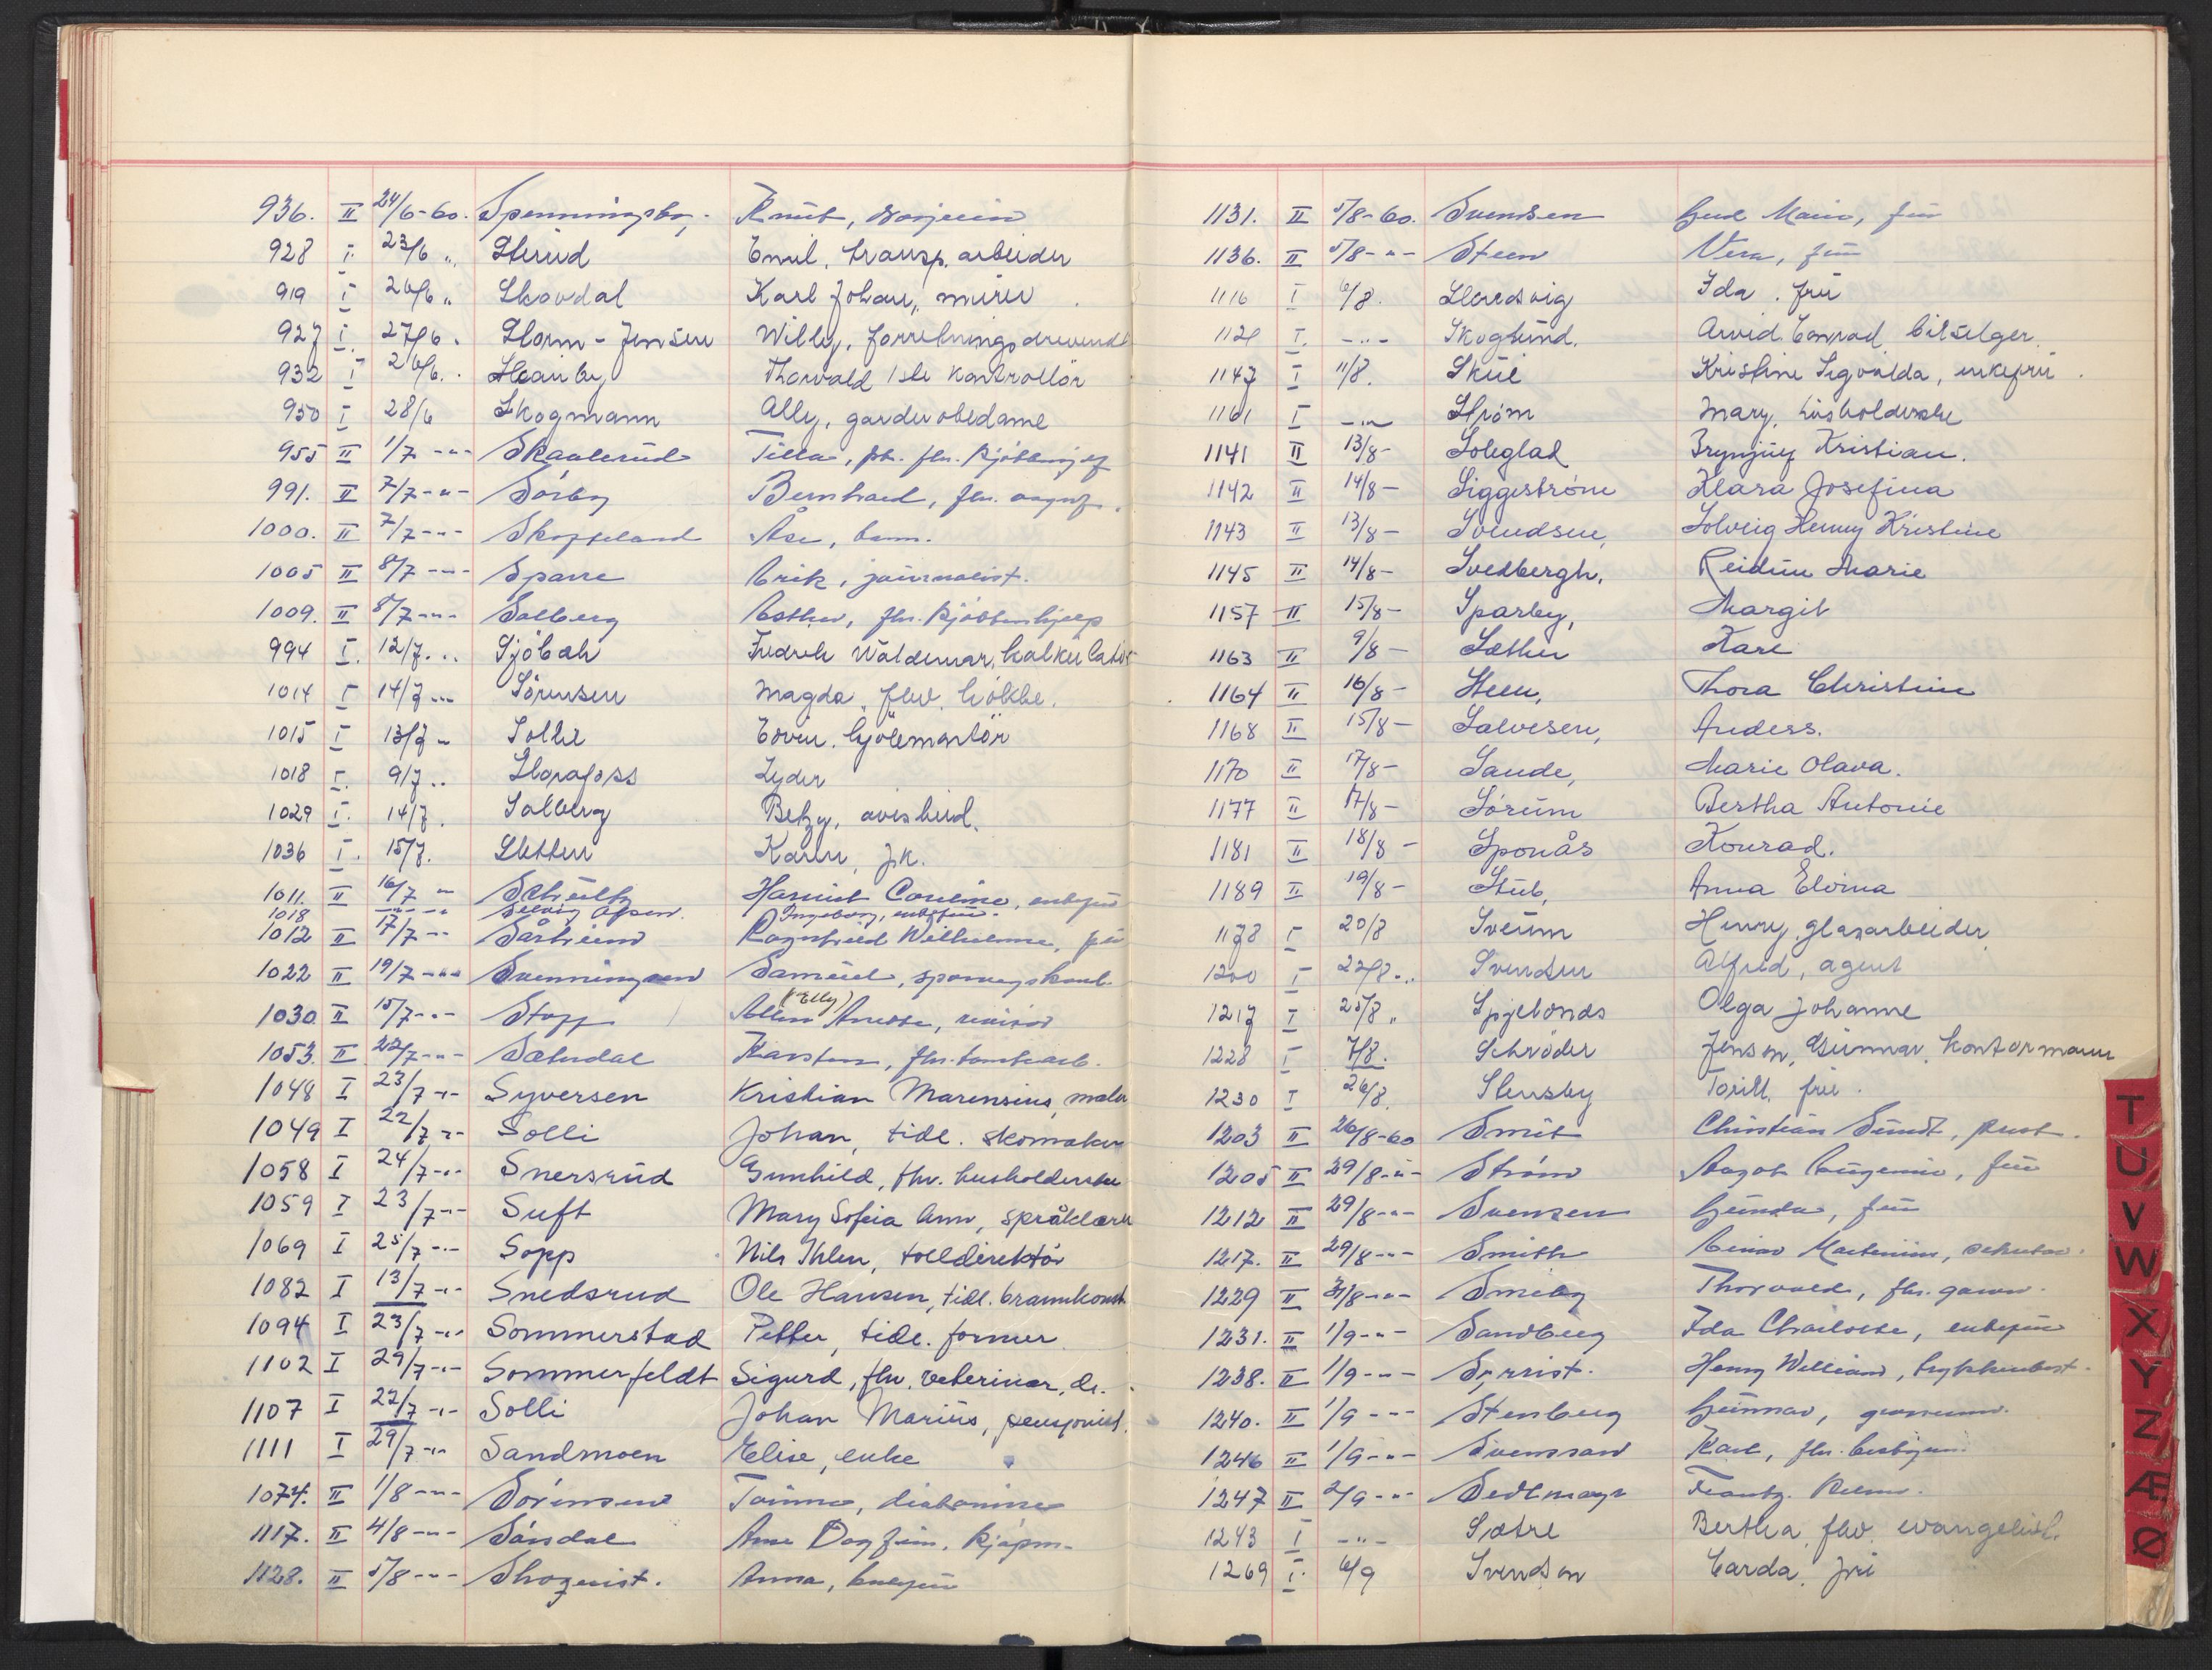 936. II 24/6-60. Spenningsby, Knut,
928 I 23/6 " Sterud Emil, transp. arbeider
919 I 26/6 " Skovdal Karl Johan, murer
927 I 27/6 . Storm-Jensen Willy, forretningsdrivende
932 I 26/6 . Thorvald 1ste kontrollør
950 I 28/6 Skogmann Ally, garderobedame
955 II 1/7 -"- Skaalerud Tilla,
991. II 7/7 -"- Sörby Bernhard, fhv.
1000. II 7/7 -"- Skoffeland Åse, barn.
1005 II 8/7 -"- Sparre Erik, journalist.
1009. II 8/7 -"- Solberg Esther, fhv. kjökkenhjelp
994 I. 12/7 ... Sjöbæk Fredrik Waldemar, kalkulatör
1014 I 14/7 ... Sörensen Magda, fhv. kokke.
1015 I 13/7 " Solli kjölemontör
1018 I. 9/7 .. Storafoss Lyder
1029 I. 14/7 . Solberg Betzy, avisbud.
1036 I. 15/7. Sletten Karen,
1011. II 16/7 " Schultz Harriet Caroline, enkefru
1018 -"- Selvig Olsen. Ingeborg, enkefru.
1012 II 17/7 -"- Sårheim Ragnhild Wilhelmine, fru
1022 II 19/7 -"- Svenningsen Samuel,
1030. II 15/7 -"- Stopp (Elly) revisor
1053. II 22/7 -"- Sæterdal Karsten, fhv.
1048 I 23/7 -"- Syversen Kristian Marensius, maler
1049 I 22/7 -"- Solli Johan, tidl. skomaker
1058 I 24/7 -"- Snersrud Gunhild, fhv. husholderske
1059 I 23/7 -"- Suft Mary Sofeia Ann, språklærer
1069 I 25/7 -"- Sopp Nils Ihlen, tolldirektör
1082 I 13/7 -"- Snedsrud Ole Hansen, tidl. brannkonst
1094 I 23/7 -"- Sommerstad Petter, tidl. former
1102 I 29/7 -"- Sommerfeldt Sigurd, fhv. veterinær, dr.
1107 I 22/7 -"- Solli Johan Marius, pensjonist.
1111 I 29/7 -"- Sandmoen Elise, enke
1074. II 1/8 -"- Sörensen diakonisse
1117. II 4/8 -"- Sörsdal Arne Dagfinn, kjöpm.
1128. II 5/8 -"- Skogquist. Anna, enkefru
1131. II 5/8-60. Svendsen Gud Marie, fru
1136. II 5/8 -"- Steen Vera, fru
1116 I 6/8. Ida, fru
1121 I. -"- Skoglund. Arvid Conrad, bilselger.
1147 I 11/8. Skui Kristine Sigvalda, enkefru.
1161 I -"- Strøm Mary, husholderske
1141 II 13/8- Soleglad Brynjulf Kristian.
1142 II 14/8- Siggeström Klara Josefina
1143 II 13/8- Svendsen, Solveig Henny Kristine
1145 II 14/8- Svedbergh, Reidun Marie
1157 II 15/8- Sparby, Margit
1163 II 9/8- Sæther Kåre
1164 II 16/8- Steen, Thora Christine
1168 II 15/8- Salvesen, Anders.
1170 II 17/8- Sande, Marie Olava.
1177 II 17/8- Sörum Bertha Antonie
1181 II 18/8- Sponås Konrad.
1189 II 19/8- Stub, Anna Elvina
1178 I 20/8 Sveum Henry, glassarbeider
1200 I 22/8 .. Svendsen Alfred, agent
1217 I 25/8 " Spjelbonds Olga Johanne
1228 I 7/8. Schröder Jensen, Gunnar, kontormann
1230 I 26/8. Stensby Torill, fru.
1203 II 26/8-60 Smit Christian Sundt, prest.
1205 II 29/8 -"- Ström Eugenie, fru
1212 II 29/8 -"- Svensen Gunda, fru
1217. II 29/8 -"- Smith Einar
1229 II 31/8 -"- Smeby Thorvald, fhv.
1231. II 1/9 -"- Sandberg Ida Charlotte, enkefru
1238. II 1/9 -"- Henry William,
1240. II 1/9 -"- Stenberg Gunnar,
1246 II 1/9 -"- Svenssen Karl, fhv.
1247 II 2/9 -"- Sedlmayr Frantz
1243 I -"- Sætre Bertha, fhv. evangelist.
1269 I. 6/9 Svendsen Carda, fru
T
U
V
W
X
Y
Z
Æ
Ø